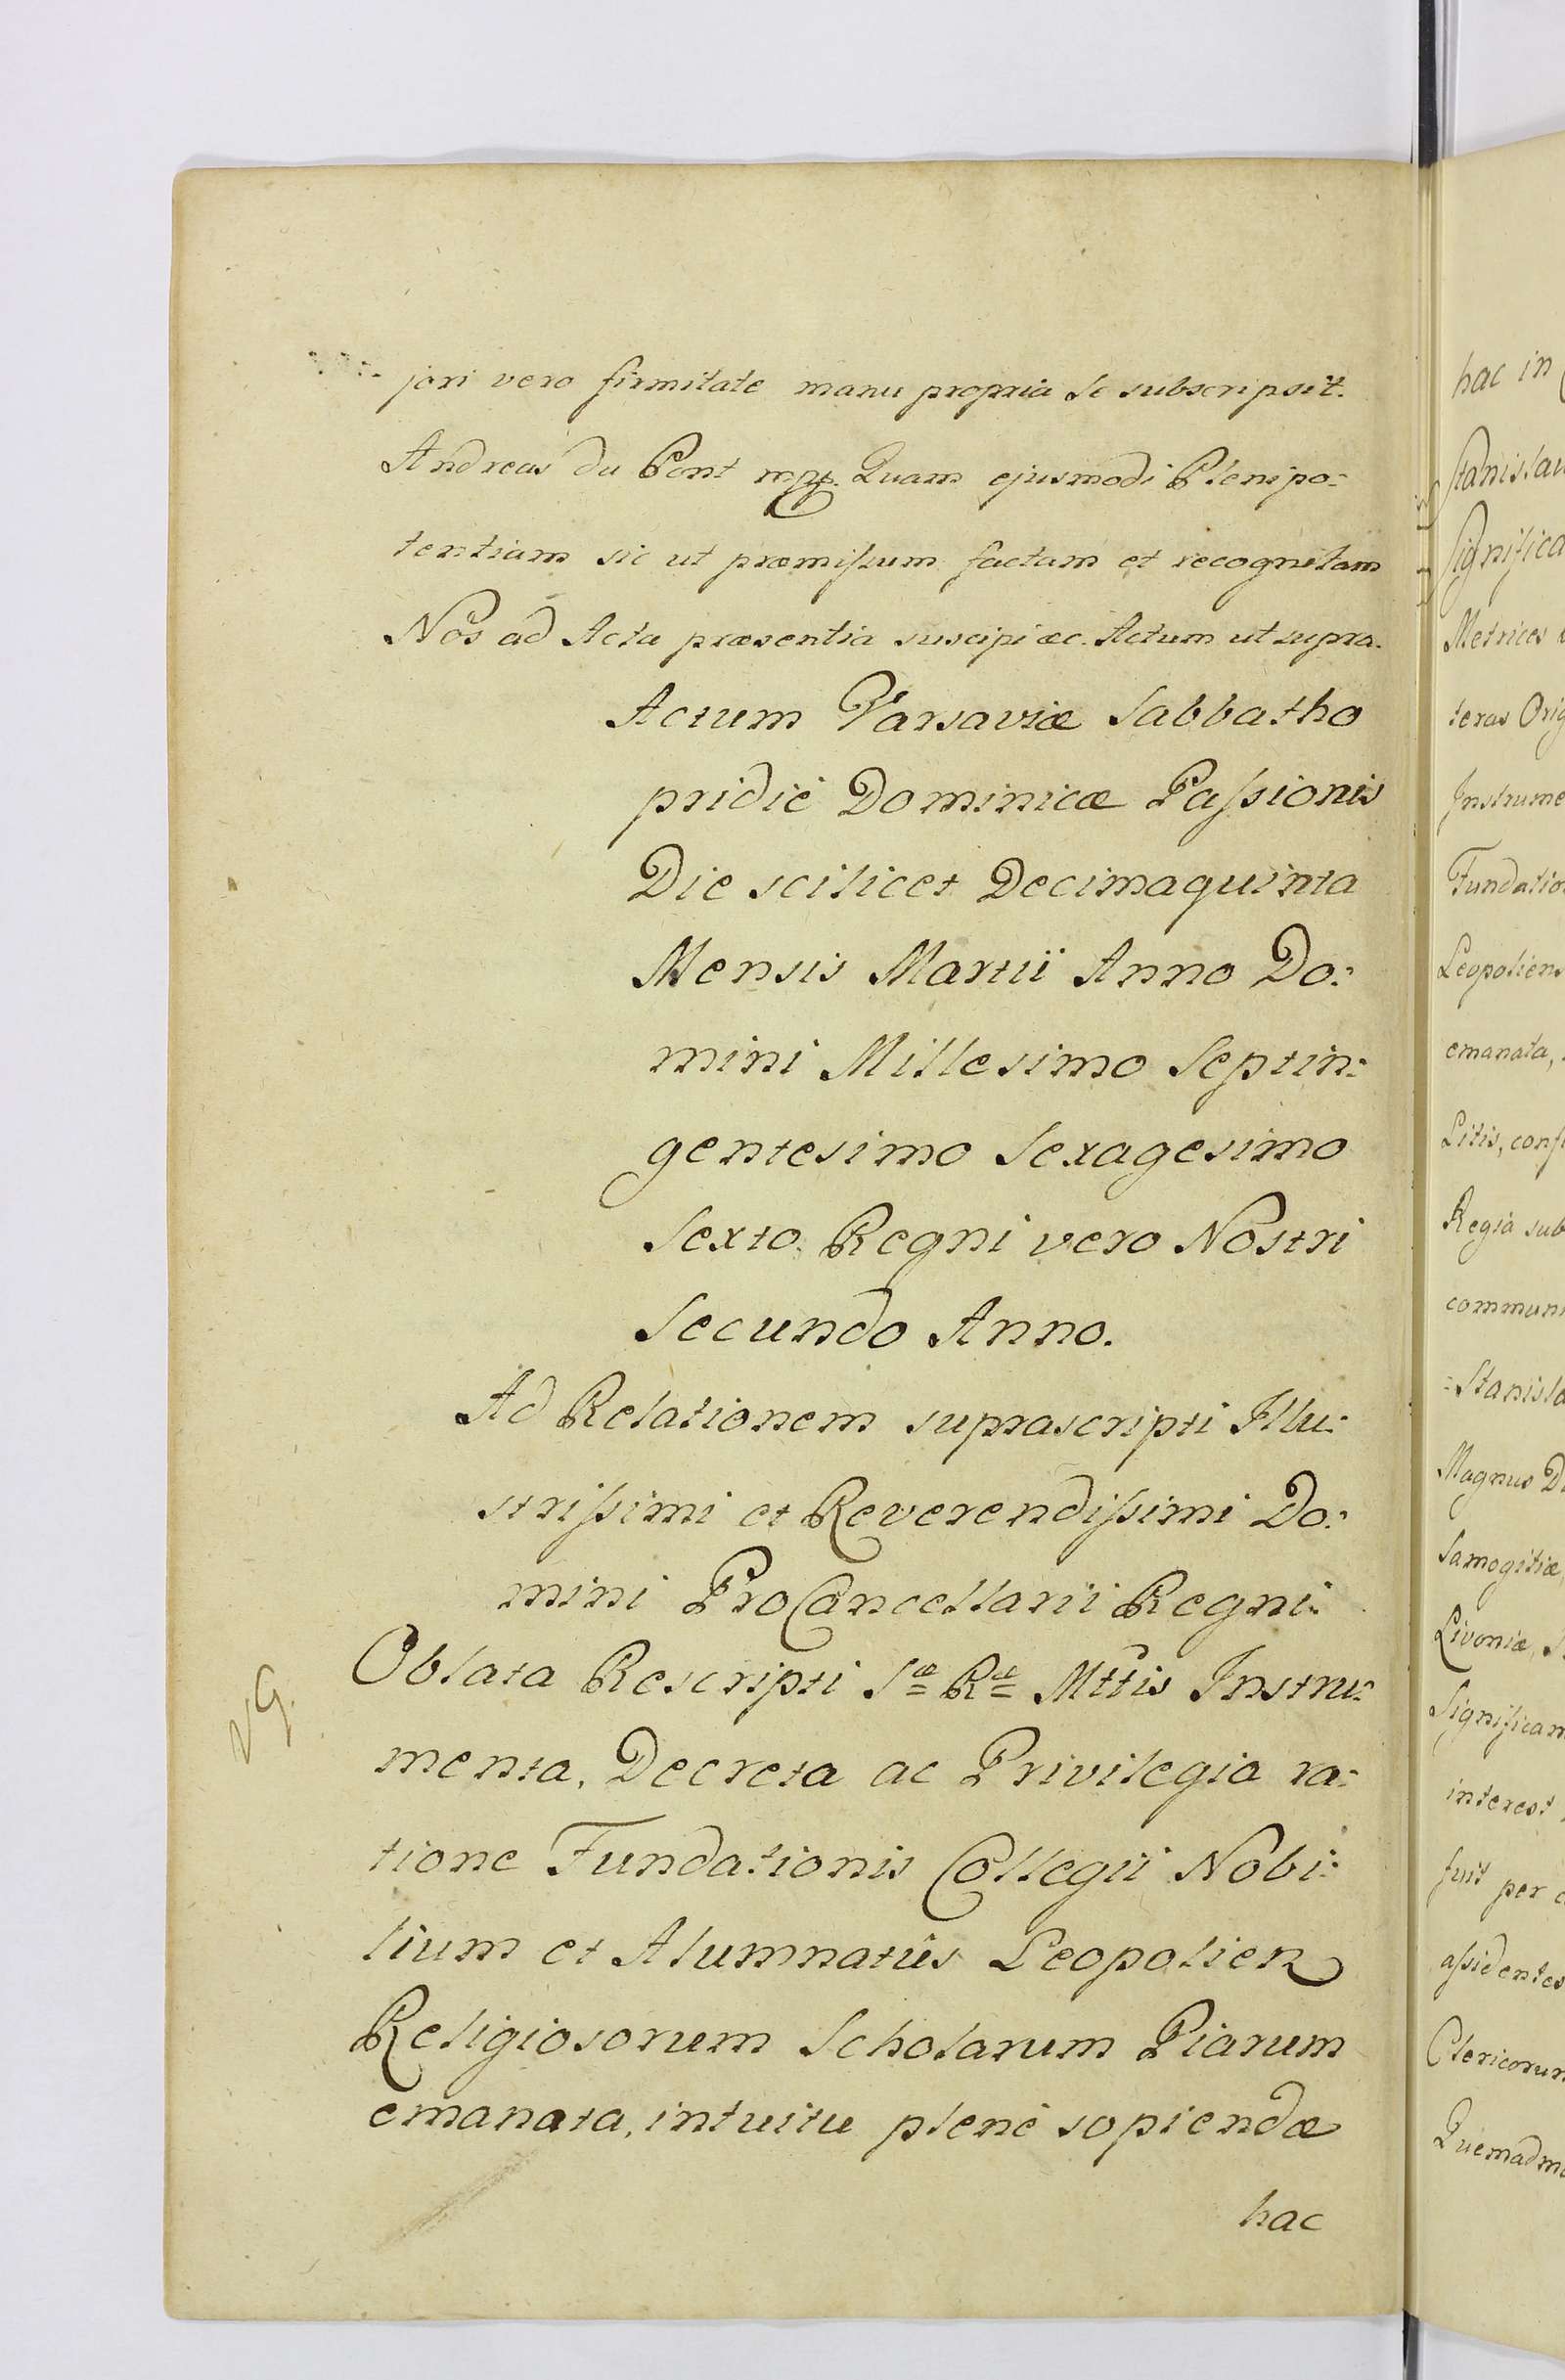 jori vero firmitate manu propria se subscripsit.
Andreas du Pont mpp. Quam ejusmodi Plenipo:
tentiam sic ut præmissum factam et recognitam
Nos ad Acta præsentia suscipi æc. Actum ut supra.
Actum Varsaviæ Sabbatho
pridiè Dominicæ Passionis
Die scilicet Decimaquinta
Mensis Martii Anno Do:
mini Millesimo Septin:
gentesimo Sexagesimo
Sexto. Regni vero Nostri
Secundo Anno.
Ad Relationem suprascripti Illu:
strissimi et Reverendissimi Do:
mini ProCancellarii Regni.
Oblata Rescripti Sæ Ræ Mttis Instru:
menta, Decreta ac Privilegia ra:
tione Fundationis Collegii Nobi:
lium et Alumnatûs Leopolien
Religiosorum Scholarum Piarum
emanata, intuitu plenè sopiendæ
hac
hac in
Stanislau
Significa
Metrices
teras Orig
Instrume
Fundatio
Leopoliens
emanata,
Litis, conf
Regia sub
communi
Stanisla
Magnus D
Samogitiæ
Livoniæ, S
Significam
interest
fuit per
assidentes
Clericorum
Quemadmo